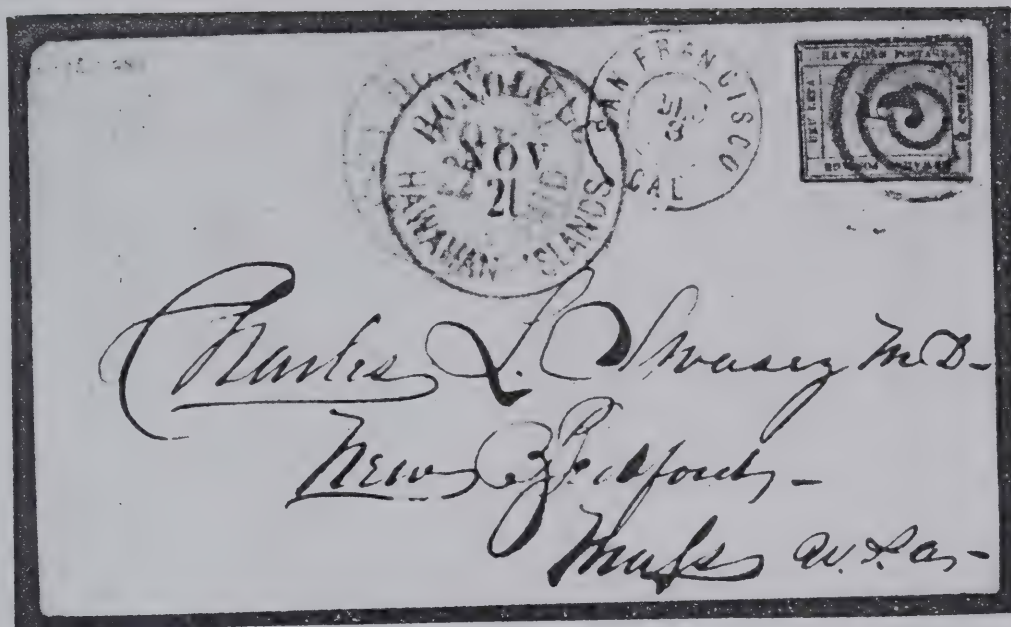 HONOLULU
NOV
21
HAWAIIAN ISLANDS
SAN FRANCISCO
CAL
HAWAIIAN POSTAGE
UKU LETA
Charles L. Swasey M.D-
New Bedford -
Mass U.S.A-